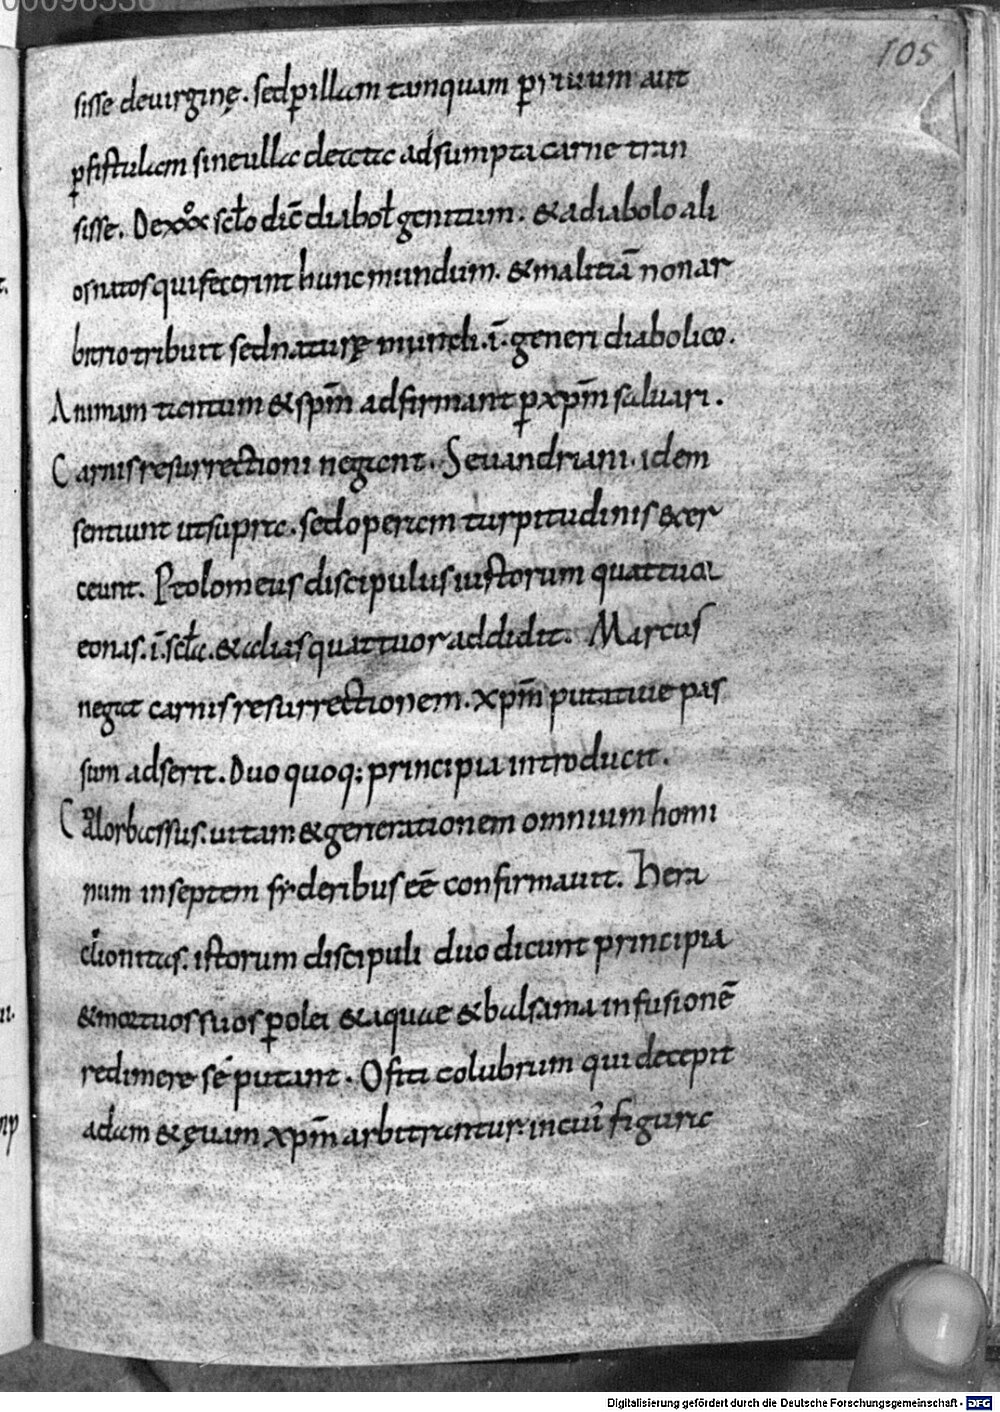 105
sisse deuirginę. sedp̱illam tanquam p̱riuum aut
p̱fistulam sineulla deicta adsumpta carne tran
sisse. De xxx̊ scło dic̄ diaboł genitum. & a diabolo ali
os natos qui fecerint hunc mundum. & malitiā non ar
bitrio tribuit sed naturę mundi. ī. generi diabolico.
Animam tantum & sp̄m adfirmant p̱ xp̄m saluari.
Carnis resurrectioni negant. Seuandriani. idem
sentiunt ut supra. sed operam turpitudinis &cer
ceunt. Ptolomeus discipulus iustorum quattuor
eonas. ī. scła. & alias quattuor addidit. Marcus
negat carnis resurrectionem. xp̄m putatiue pas
sum adserit. Duo quoq; principia introducit.
Calorbassus. uitam & generationem omnium homi
num in septem syderibus eē confirmauit. Hera
clionitas. istorum discipuli duo dicunt principia
& mortuos suos p̱ olei & aquae & balsama infusionē
redimere se putant. Ofita colubrum qui decepit
adam & ęuam xp̄m arbitrantur. in cuiꝰ figura
Digitalisierung gefördert durch die Deutsche Forschungsgemeinschaft - DFG